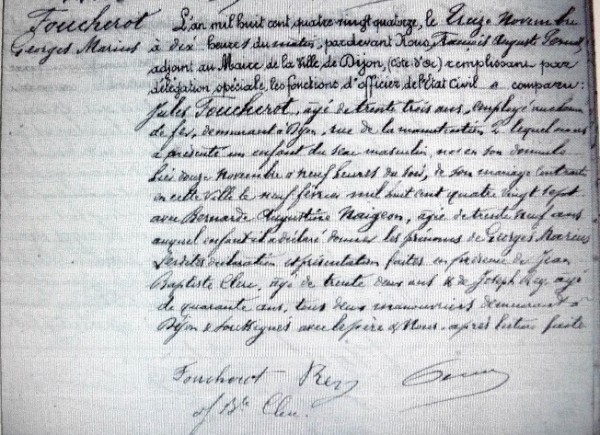 Foucherot
Georges Marius
L'an mil huit cent quatre vingt quatorze, le Treize Novembre
à dix heures du matin, pardevant Nous, Francis August
adjoint au Maire de la Ville de Dijon, (Côte d'Or) remplissant par
délégation spéciale, les fonctions d'officier de l'Etat Civil a comparu:
Jules Foucherot, âgé de trente trois ans, employé au chemin
de fer, demeurant à Dijon, rue de la manutention 2 lequel nous
a présenté un enfant du sexe masculin, né en son domicile
hier douze Novembre à neuf heures du soir, de son mariage contracté
en cette ville le neuf février mil huit cent quatre vingt sept
avec Bernarde Augustine Naigeon, âgée de trente neuf ans
auquel enfant il a déclaré donner les prénoms de Georges Marius
Lesdites déclaration et présentation faites en présence de Jean
Baptiste Clerc, âgé de trente deux ans & de Joseph Rey, âgé
de quarante ans, tous deux manouvriers demeurant à
Dijon & soussignés avec le père & Nous, après lecture faite
Foucherot Rey
J Bte Clerc.